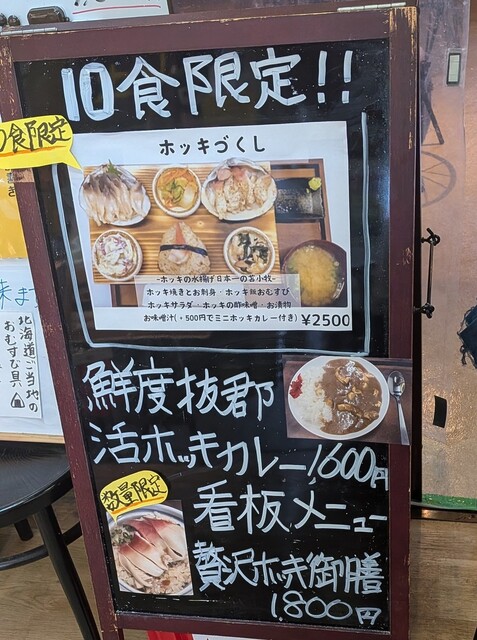 10食限定!!
食限定
ホッキづくし
-ホッキの水揚げ日本一の苫小牧-
ホッキ焼きとお刺身・ホッキ飯おむすび
ホッキサラダ・ホッキの酢味噌・お漬物
お味噌汁(+500円でミニホッキカレー付き) ¥2500
鮮度抜群
活ホッキカレー1,600円
数量限定
看板メニュー
贅沢ホッキ御膳
1,800円
北海道ご当地の
おむすび具